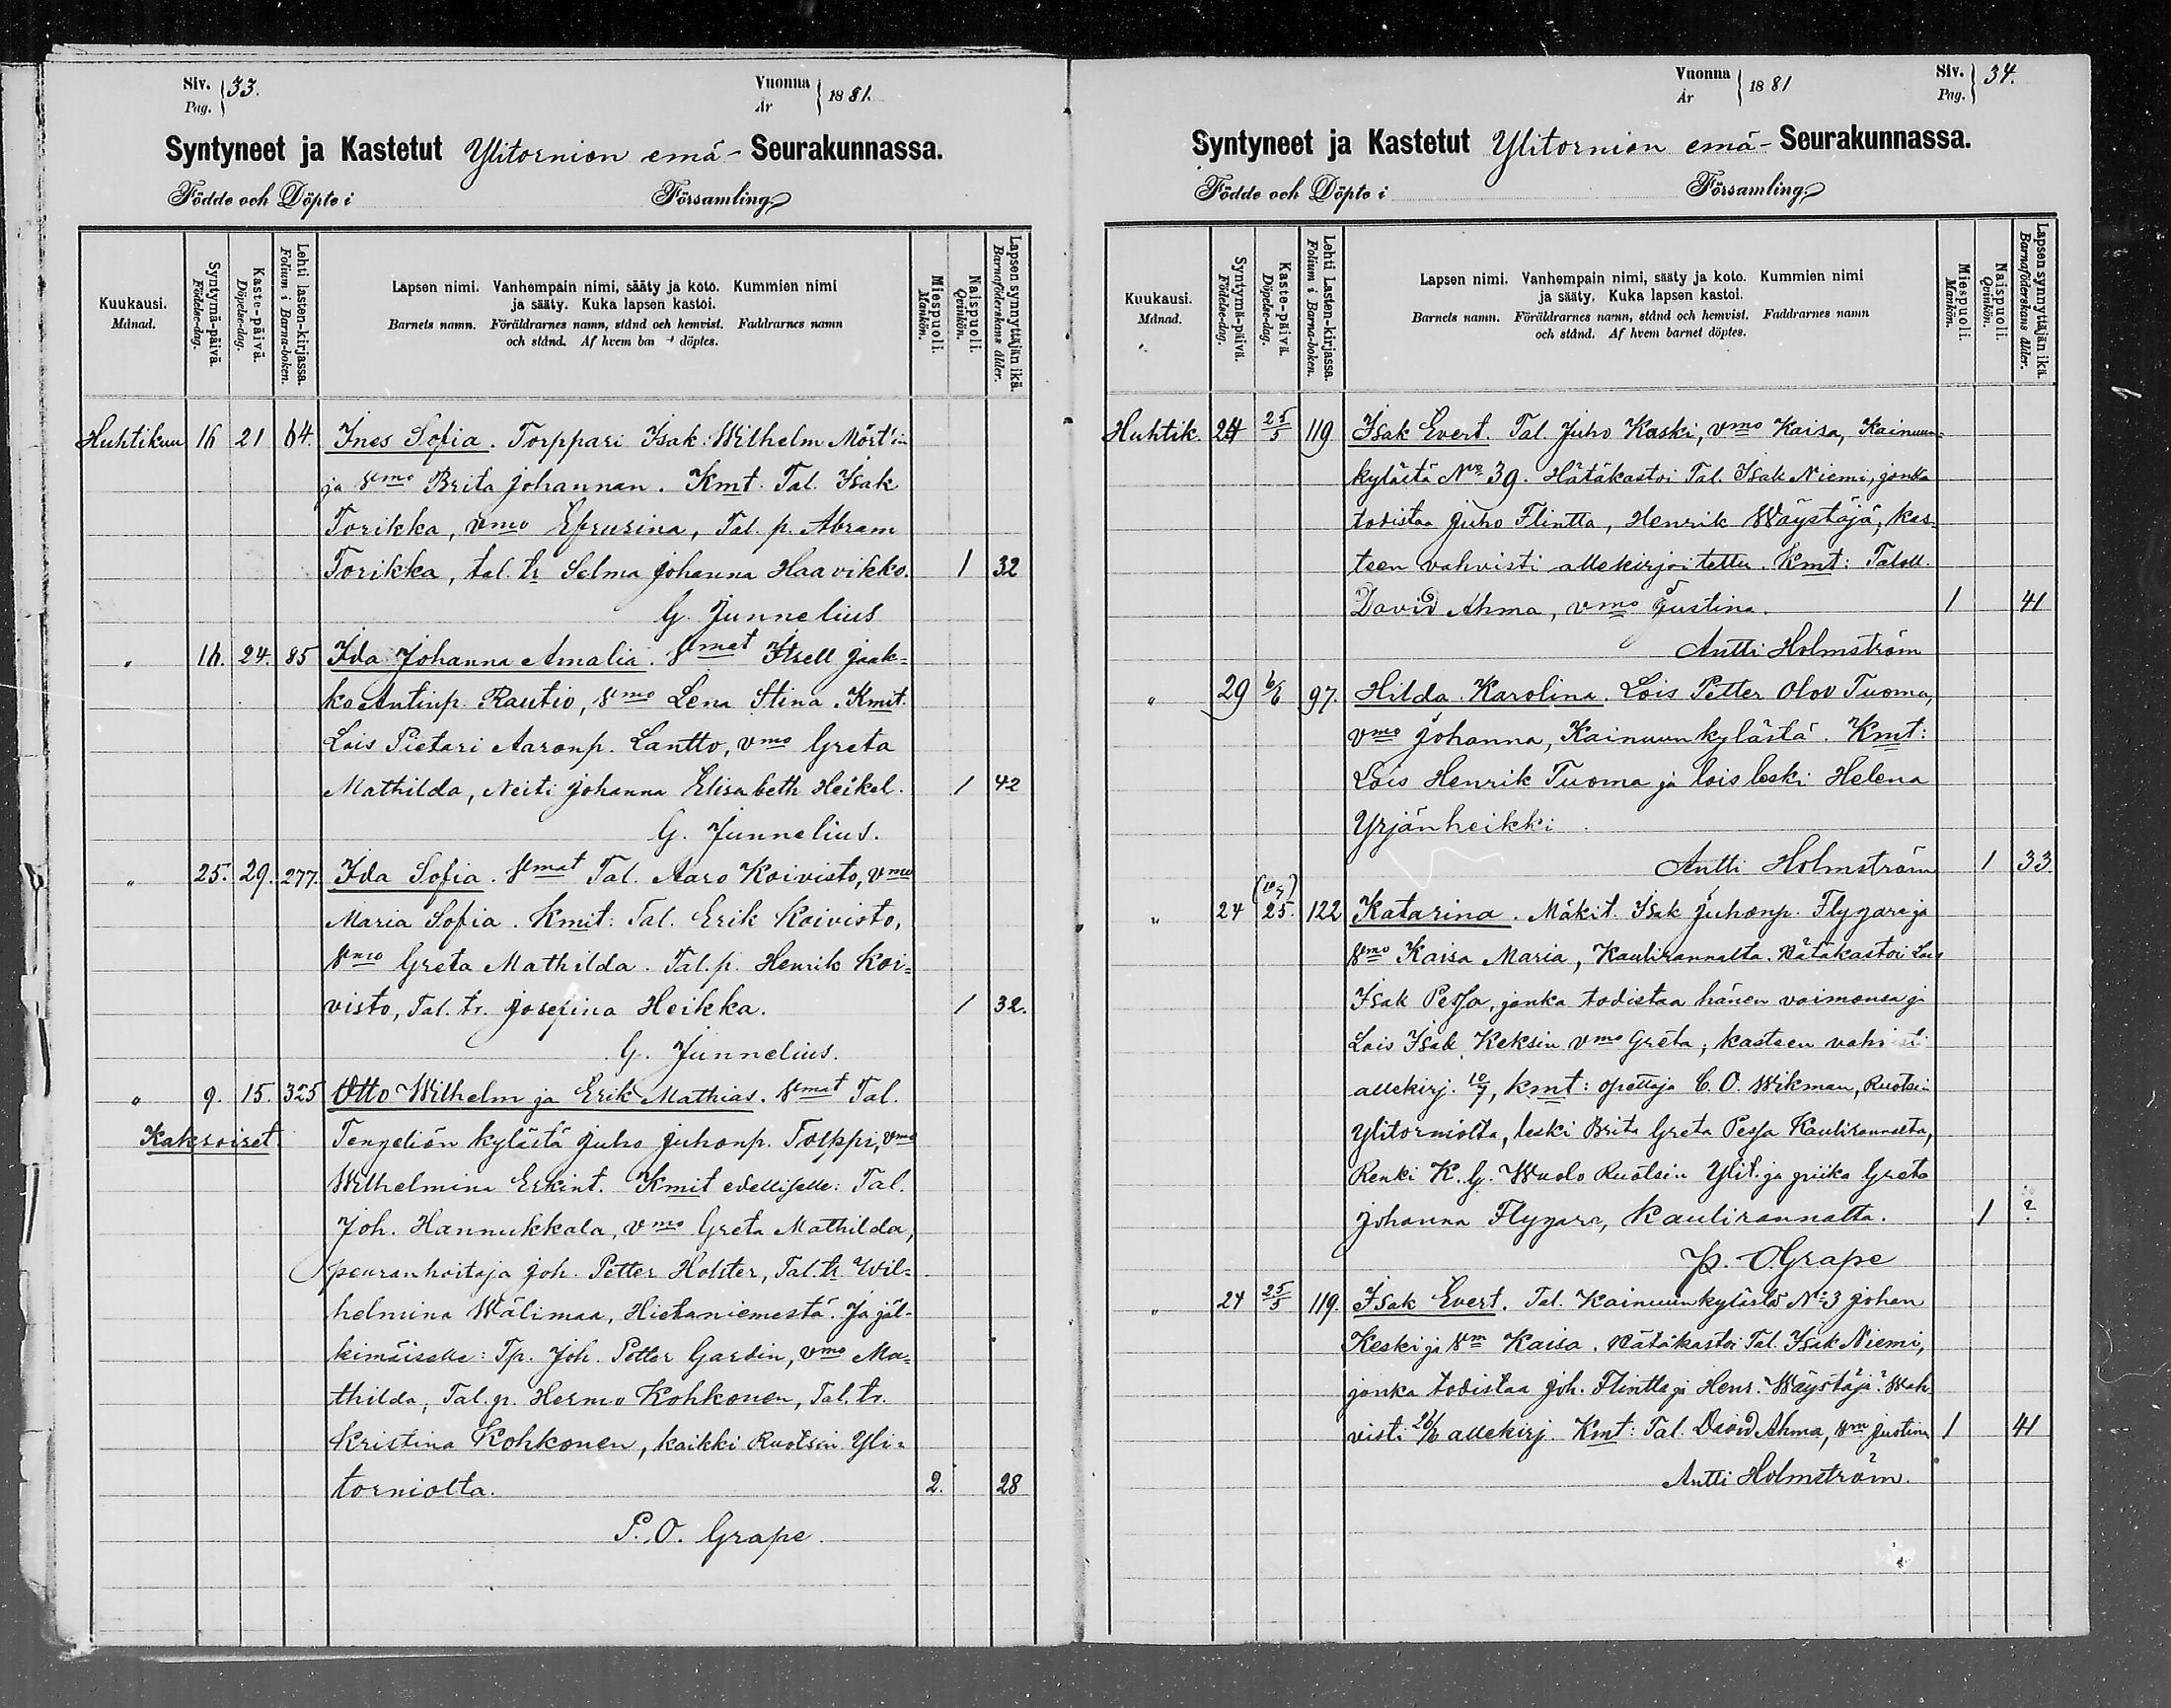 Siv. 33.
Pag.
Vuonna 1881.
År
Syntyneet ja Kastetut Ylitornion emä- Seurakunnassa.
Födde och Döpte i Församling
Kuukausi.
Månad.
Syntymä-päivä.
Födelse-dag.
Kaste-päivä.
Döpelse-dag.
Lehti lasten-kirjassa.
Folium i Barna-boken.
Lapsen nimi. Vanhempain nimi, sääty ja koto. Kummien nimi
ja sääty. Kuka lapsen kastoi.
Barnets namn. Föräldrarnes namn, stånd och hemvist. Faddrarnes namn
och stånd. Af hvem bar t döptes.
Miespuoli.
Mankön.
Naispuoli.
Qvinkön.
Lapsen synnyttäjän ikä.
Barnaföderskans ålder.
Huhtikuu 16 21 64. Ines Sofia. Torppari Isak Wilhelm Mört'in
ja Vmo Brita Johannan. Kmt. Tal. Isak
Torikka, vmo Efrusina, Tal. p. Abram
Torikka, tal. tr Selma Johanna Haavikko. 1 32
G. Junnelius
" 16. 24. 85 Ida Johanna Amalia. Vmat Itsell Jaak-
ko Antinp. Rautio, Vmo Lena Stina. Kmit.
Lois Pietari Aaronp. Lantto, vmo Greta
Mathilda, Neiti Johanna Elisabeth Heikel. 1 42
G. Junnelius.
" 25. 29. 277. Ida Sofia. Vmat Tal. Aaro Koivisto, Vmo
Maria Sofia. Kmit: Tal. Erik Koivisto,
Vmo Greta Mathilda. Tal. p. Henrik Koi-
visto, Tal. tr. Josefina Heikka. 1 32.
G. Junnelius.
" 9. 15. 325 Otto Wilhelm ja Erik Mathias. Vmat Tal.
Kaksoiset Tengeliön kylästä Juho Juhonp. Tolppi, Vmo
Wilhelmina Erkint. Kmit edelliselle: Tal.
Joh. Hannukkala, vmo Greta Mathilda,
peuranhoitaja Joh. Petter Holster, Tal. tr Wil-
helmina Wälimaa, Hietaniemestä. Ja jäl-
kimäiselle: Tp. Joh. Petter Gardin, vmo Ma-
thilda, Tal. p. Hermo Kohkonen, Tal. tr.
Kristina Kohkonen, kaikki Ruotsin Yli-
torniolta. 2. 28
P. O. Grape.
Vuonna 1881
År
Siv. 34.
Pag.
Syntyneet ja Kastetut Ylitornion emä- Seurakunnassa.
Födde och Döpte i Församling
Kuukausi.
Månad.
Syntymä-päivä.
Födelse-dag.
Kaste-päivä.
Döpelse-dag.
Lehti Lasten-kirjassa.
Folium i Barna-boken.
Lapsen nimi. Vanhempain nimi, sääty ja koto. Kummien nimi
ja sääty. Kuka lapsen kastoi.
Barnets namn. Föräldrarnes namn, stånd och hemvist. Faddrarnes namn
och stånd. Af hvem barnet döptes.
Miespuoli.
Mankön.
Naispuoli.
Qvinkön.
Lapsen synnyttäjän ikä.
Barnaföderskans ålder.
Huhtik. 24 25/5 119 Isak Evert. Tal. Juho Kaski, vmo Kaisa, Kainuun-
kylästä No 39. Hätäkastoi Tal. Isak Niemi, jonka
todistaa Juho Flintta, Henrik Wäystäjä, Kas-
teen vahvisti allekirjoitettu. Kmt: Taloll.
David Ahma, vmo Justina. 1 41
Antti Holmström
" 29 6/6 97. Hilda Karolina. Lois Petter Olov Tuoma,
vmo Johanna, Kainuunkylästä. Kmt:
Lois Henrik Tuoma ja lois leski Helena
Yrjänheikki
Antti Holmström 1 33.
(10/7)
" 24 25. 122 Katarina. Mäkit. Isak Juhonp. Flygare ja
Vmo Kaisa Maria, Kaulirannalta. Hätäkastoi Lois
Isak Pessa, jonka todistaa hänen vaimonsa ja
Lois Isak Keksin vmo Greta; kasteen vahvisti
allekirj. 10/7, kmt: opettaja C. O. Wikman, Ruotsin
Ylitorniolta, leski Brita Greta Pessa Kaulirannalta,
Renki K. G. Wuolo Ruotsin Ylit. ja piika Greta
Johanna Flygare, Kaulirannalta. 1 ?
P. O Grape
" 24 25/5 119. Isak Evert. Tal. Kainuunkylästä No 3 Johan
Keski ja Vm Kaisa. Hätäkastoi Tal. Isak Niemi,
jonka todistaa Joh. Flintta ja Henr. Wäystäjä. Wah
visti 26/6 allekirj. Kmt: Tal. David Ahma, Vm Justina 1 41
Antti Holmström.